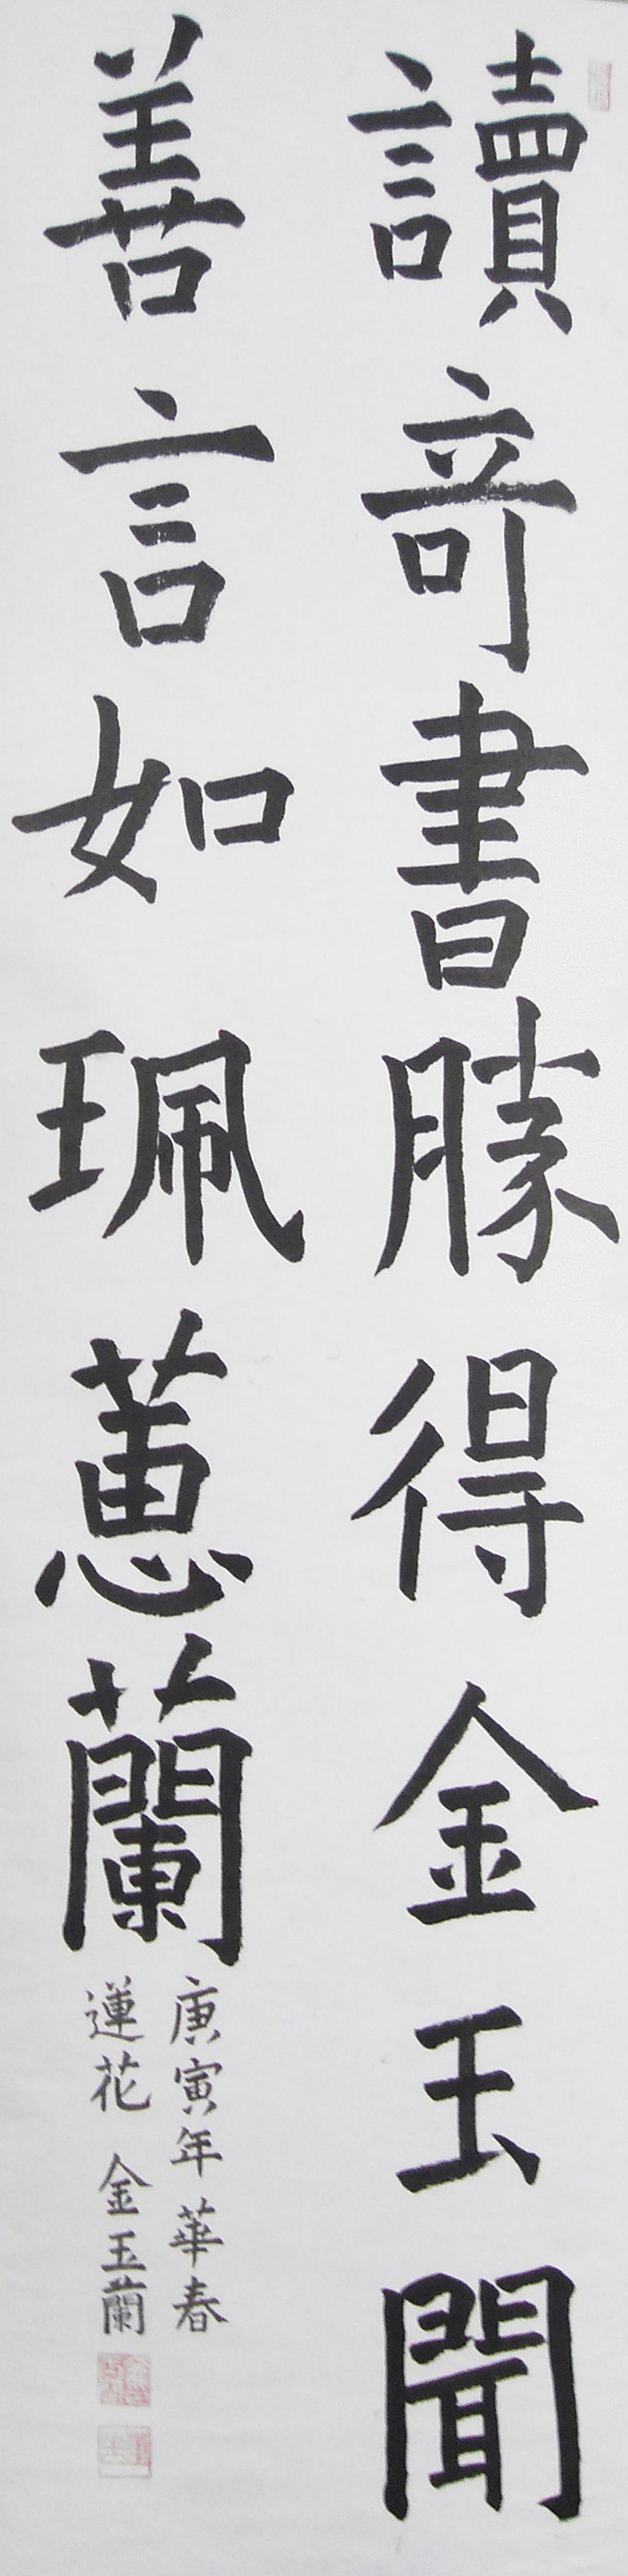 讀奇書勝得金玉聞
善言如珮蕙蘭
庚寅年華春
蓮花 金玉蘭